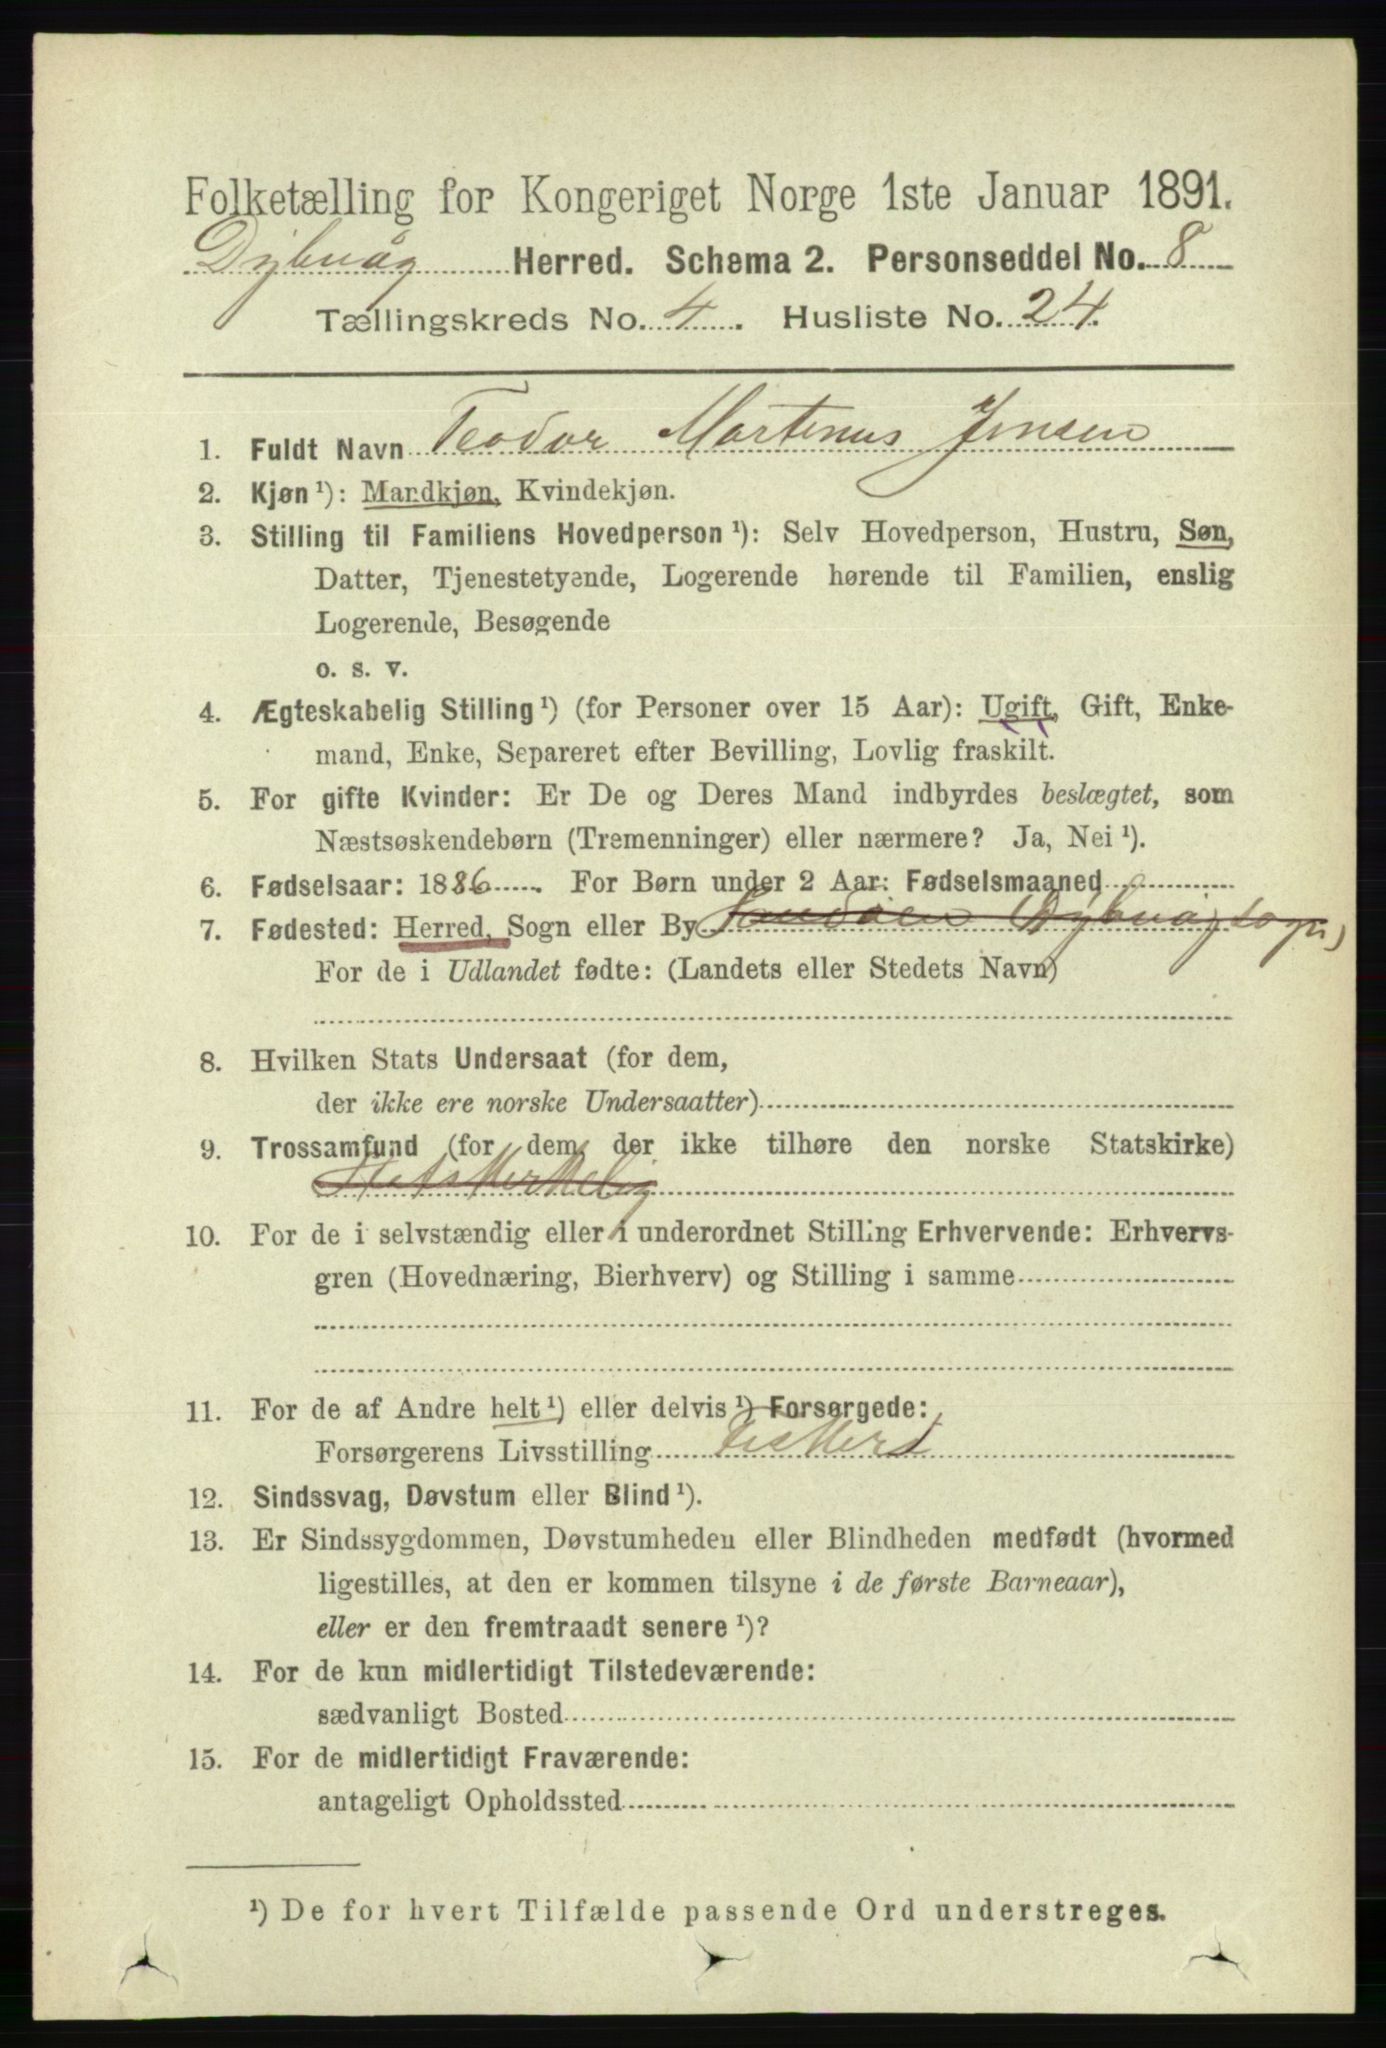 Folketælling for Kongeriget Norge 1ste Januar 1891.
Dybvåg Herred. Schema 2. Personseddel No. 8
Tællingskreds No. 4. Husliste No. 24.
1. Fuldt Navn Teodor Martinus Jensen
2. Kjøn ¹): Mandkjøn, Kvindekjøn.
3. Stilling til Familiens Hovedperson ¹): Selv Hovedperson, Hustru, Søn,
Datter, Tjenestetyende, Logerende hørende til Familien, enslig
Logerende, Besøgende
o. s. v.
4. Ægteskabelig Stilling ¹) (for Personer over 15 Aar): Ugift, Gift, Enke-
mand, Enke, Separeret efter Bevilling, Lovlig fraskilt.
5. For gifte Kvinder: Er De og Deres Mand indbyrdes beslægtet, som
Næstsøskendebørn (Tremenninger) eller nærmere? Ja, Nei ¹).
6. Fødselsaar: 1886. For Børn under 2 Aar: Fødselsmaaned
7. Fødested: Herred, Sogn eller By Sandøen Dybvåg sogn
For de i Udlandet fødte: (Landets eller Stedets Navn)
8. Hvilken Stats Undersaat (for dem,
der ikke ere norske Undersaatter)
9. Trossamfund (for dem, der ikke tilhøre den norske Statskirke)
Statskirkelig
10. For de i selvstændig eller i underordnet Stilling Erhvervende: Erhvervs-
gren (Hovednæring, Bierhverv) og Stilling i samme
11. For de af Andre helt ¹) eller delvis ¹) Forsørgede:
Forsørgerens Livsstilling
12. Sindssvag, Døvstum eller Blind ¹).
13. Er Sindssygdommen, Døvstumheden eller Blindheden medfødt (hvormed
ligestilles, at den er kommen tilsyne i de første Barneaar),
eller er den fremtraadt senere ¹)?
14. For de kun midlertidigt Tilstedeværende:
sædvanligt Bosted
15. For de midlertidigt Fraværende:
antageligt Opholdssted
¹) De for hvert Tilfælde passende Ord understreges.